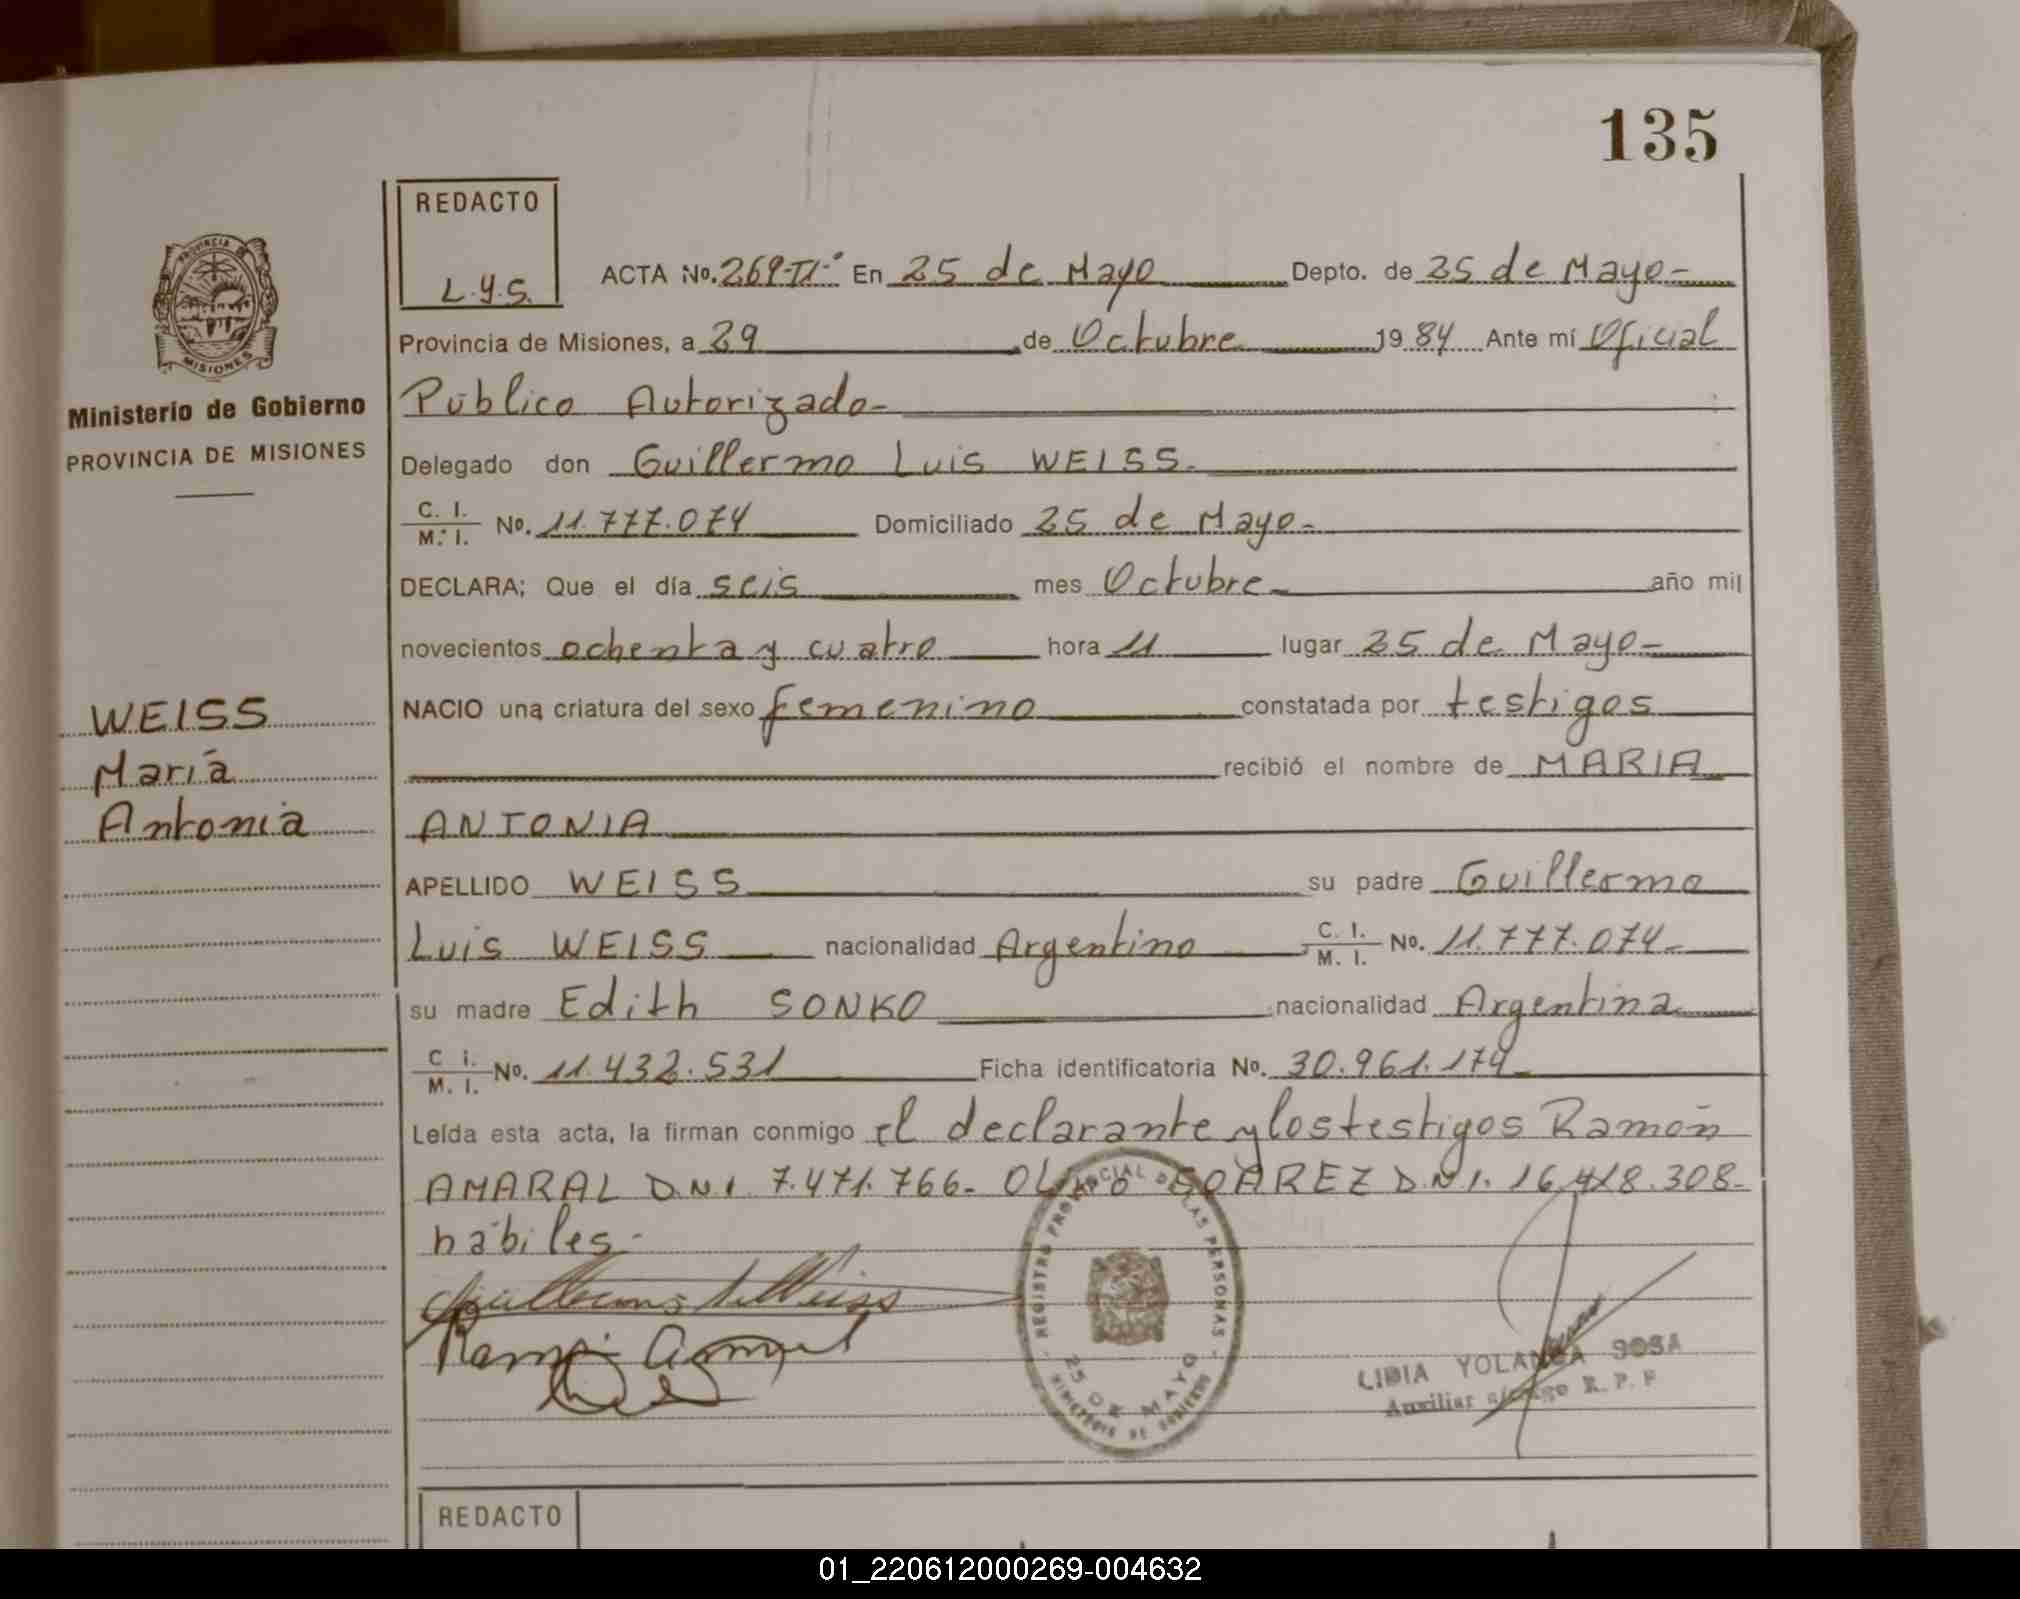 135
REDACTO
L.Y.S.
ACTA No. 269-TI-° En 25 de Mayo Depto. de 25 de Mayo-
Provincia de Misiones, a 29 de Octubre 1984 Ante mí Oficial
Público Autorizado-
Delegado don Guillermo Luis WEISS.
C. I. M. I. No. 11.777.074 Domiciliado 25 de Mayo-
DECLARA; Que el día seis mes Octubre año mil
novecientos ochenta y cuatro hora 11 lugar 25 de Mayo-
NACIO una criatura del sexo femenino constatada por testigos
recibió el nombre de MARIA
ANTONIA
APELLIDO WEISS su padre Guillermo
Luis WEISS nacionalidad Argentino C. I. M. I. No. 11.777.074-
su madre Edith SONKO nacionalidad Argentina
C i. M. I. No. 11.432.531 Ficha identificatoria No. 30.961.174-
Leída esta acta, la firman conmigo el declarante y los testigos Ramón
AMARAL D.N.I. 7.471.766- SOAREZ D.N.I. 16.418.308-
hábiles-
PROVINCIA DE
MISIONES
Ministerio de Gobierno
PROVINCIA DE MISIONES
WEISS
María
Antonia
REGISTRO PROVINCIAL DE LAS PERSONAS
25 DE MAYO
MINISTERIO DE GOBIERNO
LIDIA YOLANDA SOSA
Auxiliar R. P. P
REDACTO
01_220612000269-004632